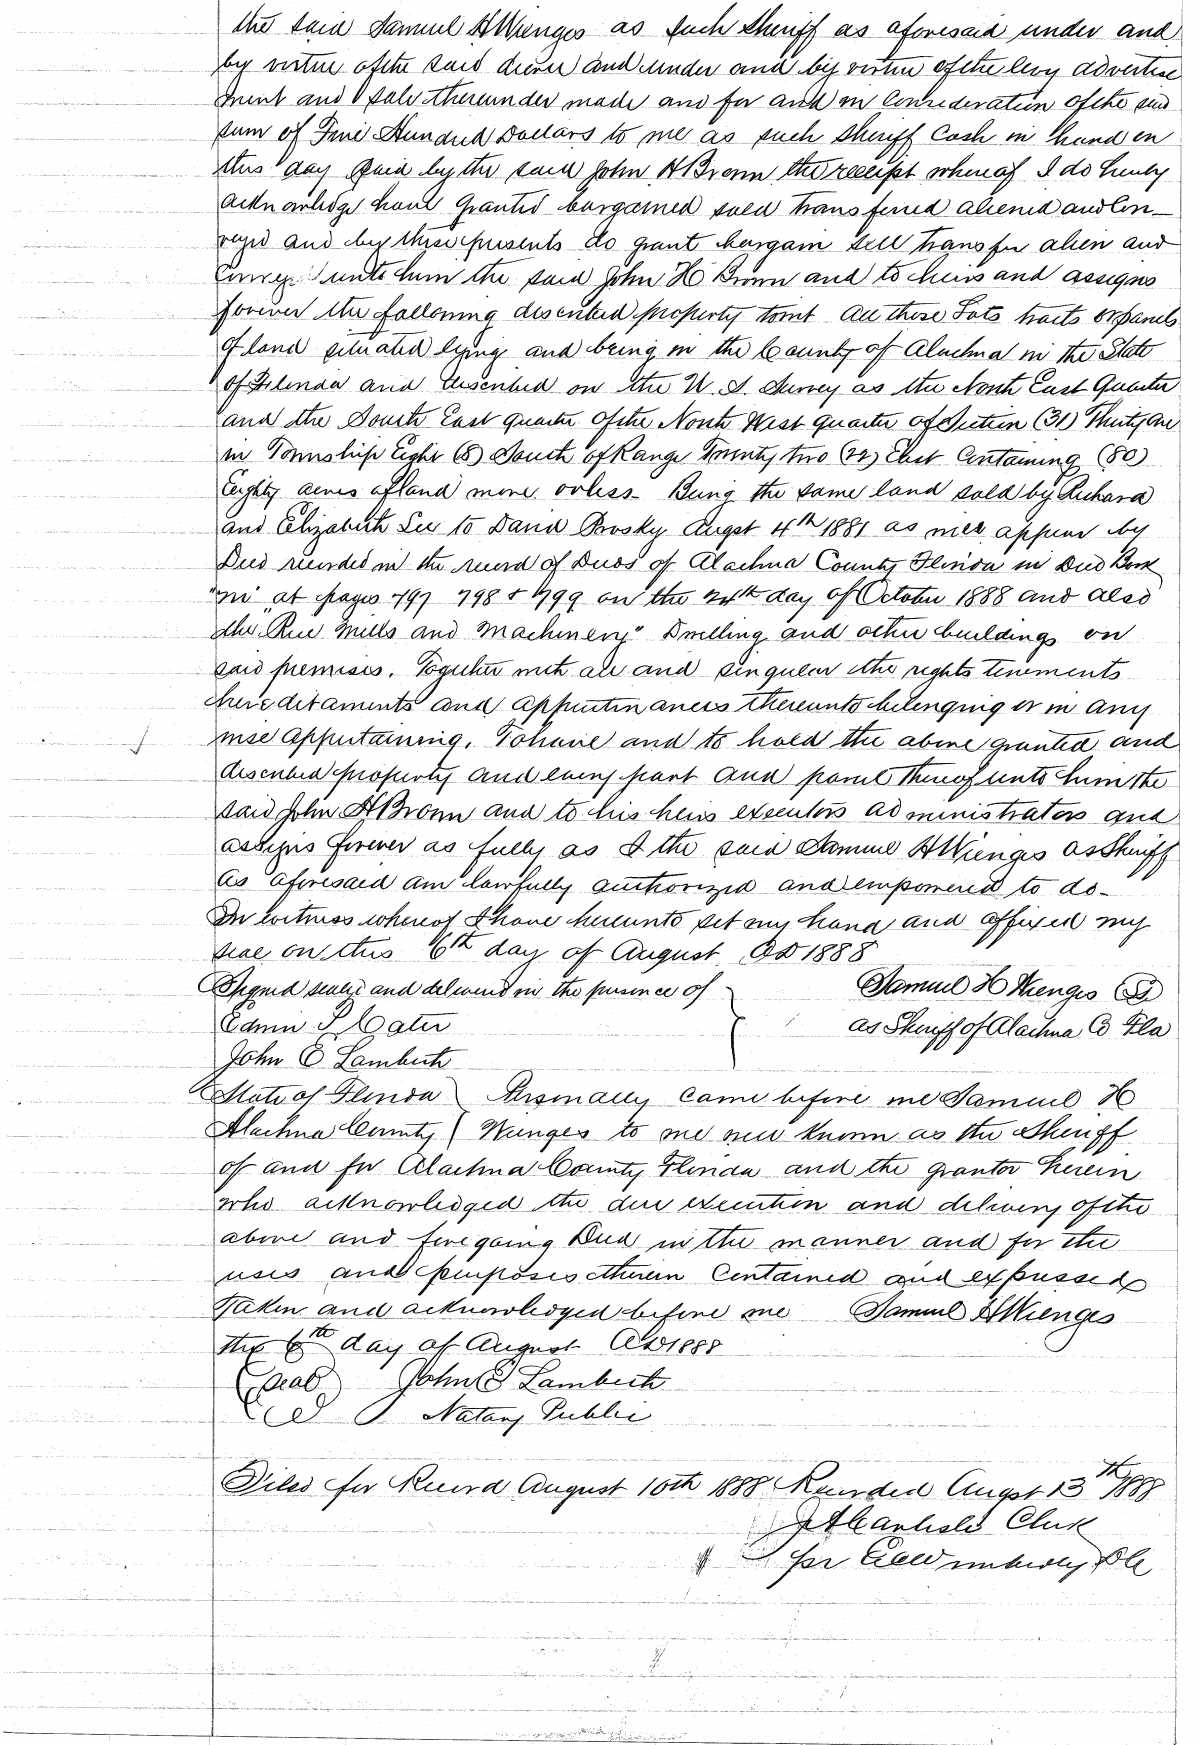 the said Samuel H Wienges as such Sheriff as aforesaid under and
by virtue of the said decree and under and by virtue of the levy advertise
ment and sale thereunder made and for and in Consideration of the said
sum of Five Hundred Dollars to me as such Sheriff Cash in hand on
this day paid by the said John H Brown the receipt whereof I do hereby
acknowledge have granted bargained sold transferred aliened and Con_
veyed and by these presents do grant bargain sell transfer alien and
Convey unto him the said John H Brown and to heirs and assigns
forever the following described property towit All those Lots tracts or parcels
of land situated lying and being in the County of Alachua in the State
of Florida and described on the U. S. Survey as the North East Quarter
and the South East quarter of the North West quarter of Section (31) Thirty One
in Township Eight (8) South of Range Twenty two (22) East Containing (80)
Eighty acres of land more or less. Being the same land sold by Richard
and Elizabeth Lee to David Prosky Augst 4th 1881 as will appear by
Deed recorded in the record of Deeds of Alachua County Florida in Deed Book
"M" at pages 797 798 & 799 on the 24th day of October 1888 and also
the "Rice Mills and Machinery" Dwelling and other buildings on
said premises. Together with all and singular the rights tenements
hereditaments and appurtinances thereunto belonging or in any
wise appurtaining. To have and to hold the above granted and
described property and every part and parcel thereof unto him the
said John H Brown and to his heirs executors administrators and
assigns forever as fully as I the said Samuel H Wienges as Sheriff
as aforesaid am lawfully authorized and empowered to do_
In witness whereof I have hereunto set my hand and affixed my
seal on this 6th day of August AD 1888
Signed sealed and delivered in the presence of Samuel H Wienges
Edwin P Cater as Sheriff of Alachua Co Fla
John E Lambeth
State of Florida Personally came before me Samuel H
Alachua County Wienges to me well known as the Sheriff
of and for Alachua County Florida and the grantor herein
who acknowledged the due execution and delivery of the
above and foregoing Deed in the manner and for the
uses and purposes therein Contained and expressed
Taken and acknowledged before me Samuel H Wienges
this 6th day of August AD 1888
(Seal) John E Lambeth
Notary Public
Filed for Record August 10th 1888 Recorded Augst 13th 1888
J A Carlisle Clerk
per